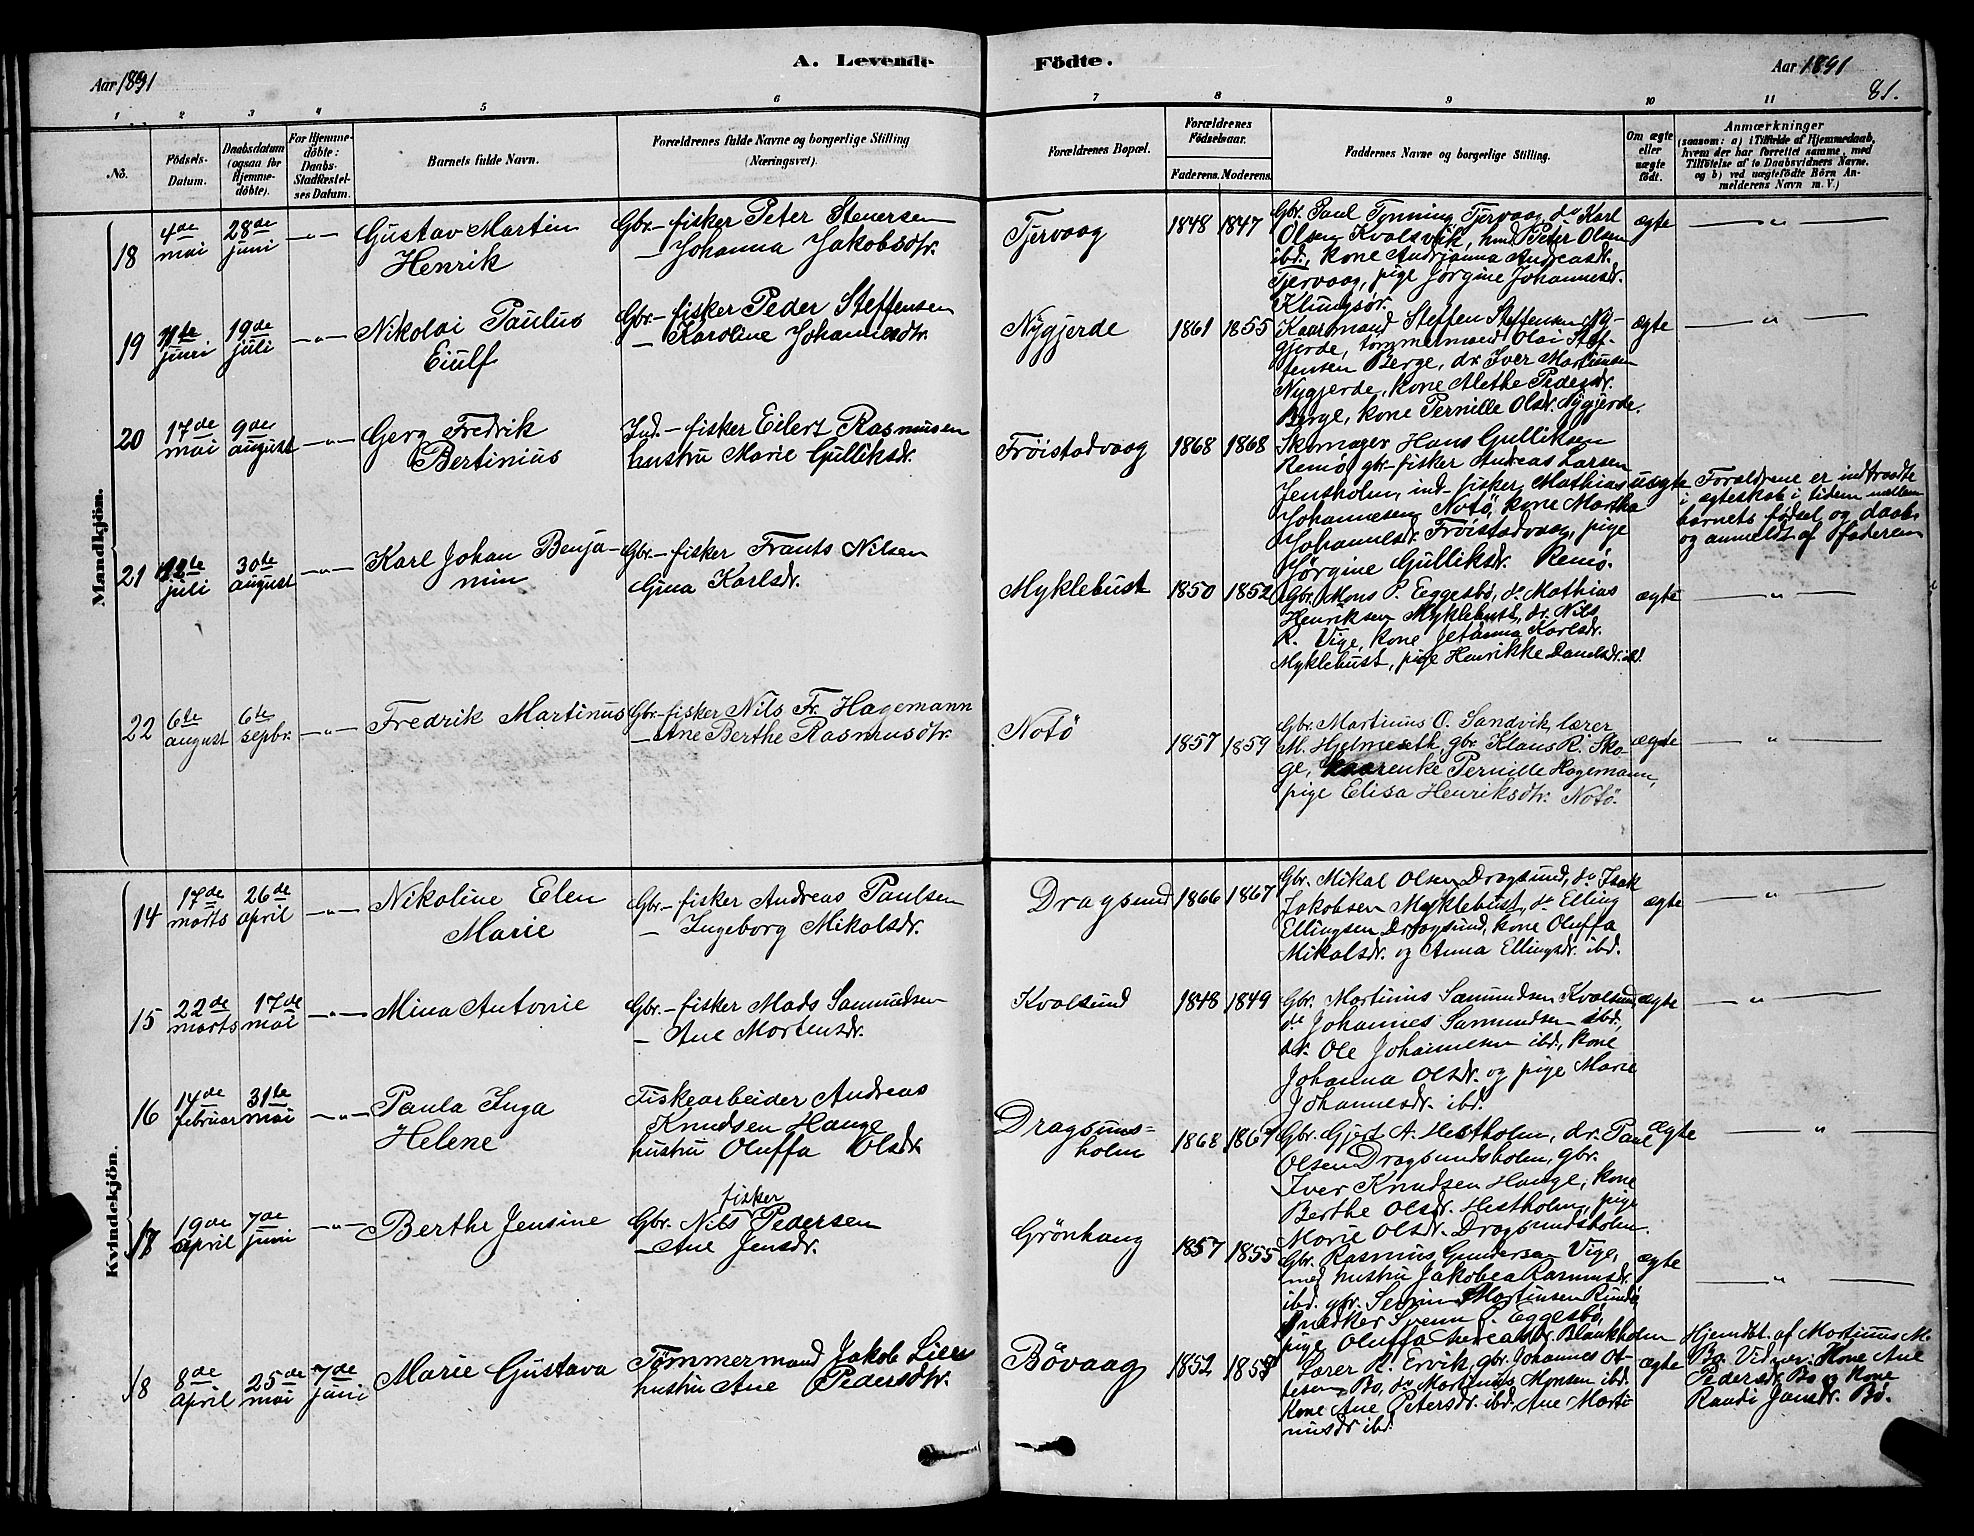 Aar 1891
A. Levende
Födte.
Aar 1891
81.
1 2 3 4 5 6 7 8 9 10 11
No.
Födsels-Datum.
Daabsdatum (ogsaa for Hjemme-döbte).
For Hjemme-döbte: Daabs-Stadfæstel-ses Datum.
Barnets fulde Navn.
Forældrenes fulde Navne og borgerlige Stilling (Næringsvei).
Forældrenes Bopæl.
Forældrenes Födselsaar.
Faderens. Moderens.
Faddernes Navne og borgerlige Stilling.
Om ægte eller uægte födt.
Anmærkninger
(saasom: a) i Tilfælde af Hjemmedaab,
hvem der har forrettet samme, med
Tilföielse af to Daabsvidners Navne.
og b) ved uægtefödte Börn An-
melderens Navn m. V.)
Mandkjön.
18 4de mai 28de juni -"- Gustav Martin
Henrik
Gbr.- fisker Peter Stenersen
- Johanna Jakobsdtr.
Tjervaag 1848 1847
Gbr. Paul Tonning Tjervaag, do Karl
Olsen Kvalsvik, hmd Peter Olsen
ibd., kone Andrianna Andreasdr.
Tjervaag, pige Jørgine Johannesdr.
Klungsør.
ægte -"-
19 juni 19de juli -"- Nikolai Paulus
Eiulf
Gbr.- fisker Peder Steffensen
- Karoline Johannesdtr.
Nygjerde 1861 1855
Kaarmand Steffen Steffensen Ny-
gjerde, tømmermand Olai Stef-
fensen Berge, dr. Iver Martinusen
Nygjerde, kone Alethe Pedersdr.
Berge, kone Pernille Olsdr. Nygjerde.
ægte -"-
20 17de mai 9de august -"- Gerg Fredrik
Bertinius
Ind.- fisker Eilert Rasmusen
hustru Marie Gulliksdr.
Frøistadvaag 1868 1868
Skomager Hans Gulliksen
Remø, gbr- fisker Andreas Larsen
Jensholm, ind- fisker Mathias
Johannesen Notø, kone Martha
Johannesdr. Frøistadvaag, pige
Jørgine Gulliksdr. Remø.
uægte
Forældrene er indtraadte
i ægteskab i tiden mellem
barnets fødsel og daab
og anmeldt af faderen
21 juli 30te august -"- Karl Johan Benja-
min
Gbr.- fisker Frants Nilsen
Gina Karlsdr.
Myklebust 1850 1852
Gbr. Mons P. Eggesbø, do Mathias
Henriksen Myklebust, dr. Nils
R. Vige, kone Jetanna Karlsdr.
Myklebust, pige Henrikke Danelsdr. ibd.
ægte -"-
22 6te august 6te sepbr. -"- Fredrik Martinus
Gbr.- fisker Nils Fr. Hagemann
- Ane Berthe Rasmusdtr.
Notø 1857 1859
Gbr. Martinus O. Sandvik, lærer
M. Hjelmeseth, gbr. Klaus R. Sko-
ge, enke Pernille Hagemann,
pige Elisa Henriksdtr. Notø.
ægte -"-
Kvindekjön.
14 17de marts 26de april -"- Nikoline Elen
Marie
Gbr.- fisker Andreas Paulsen
- Ingeborg Mikalsdr.
Dragsund 1866 1867
Gbr. Mikal Olsen Dragsund, do Isak
Jakobsen Myklebust, do Elling
Ellingsen Dragsund, kone Oluffa
Mikalsdr. og Anna Ellingsdr. ibd.
ægte -"-
15 22de marts 17de mai -"- Mina Antonie
Gbr.- fisker Mads Samundsen
- Ane Mortensdr.
Kvalsund 1848 1849
Gbr. Martinus Samundsen Kvalsund,
do Johannes Samundsen ibd.,
dr. Ole Johannesen ibd., kone
Johanna Olsdr. og pige Marie
Johannesdr. ibd.
ægte -"-
16 14de februar 31te mai -"- Paula Inga
Helene
Fiskearbeider Andreas
Knudsen Hauge
hustru Oluffa Olsdr.
Dragsunds=
holm 1868
Gbr. Gjert A. Hestholm, dr. Paul
Olsen Dragsundsholm, gbr.
Iver Knudsen Hauge, kone
Berthe Olsdr. Hestholm, pige
Marie Olsdr. Dragsundsholm.
ægte -"-
17 19de april 7de juni -"- Berthe Jensine
Gbr. fisker Nils Pedersen
- Ane Jensdr.
Grønhaug 1857 1855
Gbr. Rasmus Gundersen Vige,
med hustru Jakobea Rasmusdr.
ibd. gbr. Martinsen Runde
Snedker Svenn P. Eggesbø,
pige Oluffa Andreasdr. Blankholm
ægte -"-
18 8de april 25de mai 7de juni Marie Gustava
Tømmermand Jakob
hustru Ane Pedersdtr.
Bøvaag 1852
Lærer R. Ervik, gbr. Johannes Ot-
tesen Bø, do Martinus Monsen ibd.
Kone Ane Petersdr. ibd. Ane Marti-
nusdr ibd.
ægte
Hjemdbt. af Martinus M.
Bø. Vidner: Kone Ane
Pedersdr. Bø og Kone
Raudi Jansdr. Bø.